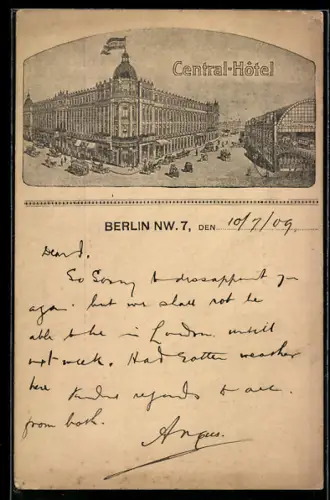 Central-Hôtel
BERLIN NW. 7, DEN 10/7/09.
Dear J.
So Sorry to dissappoint you
again. but we shall not be
able to be in London until
next week. Had rotten weather
here Kindest regards to all.
from both.
Angus.